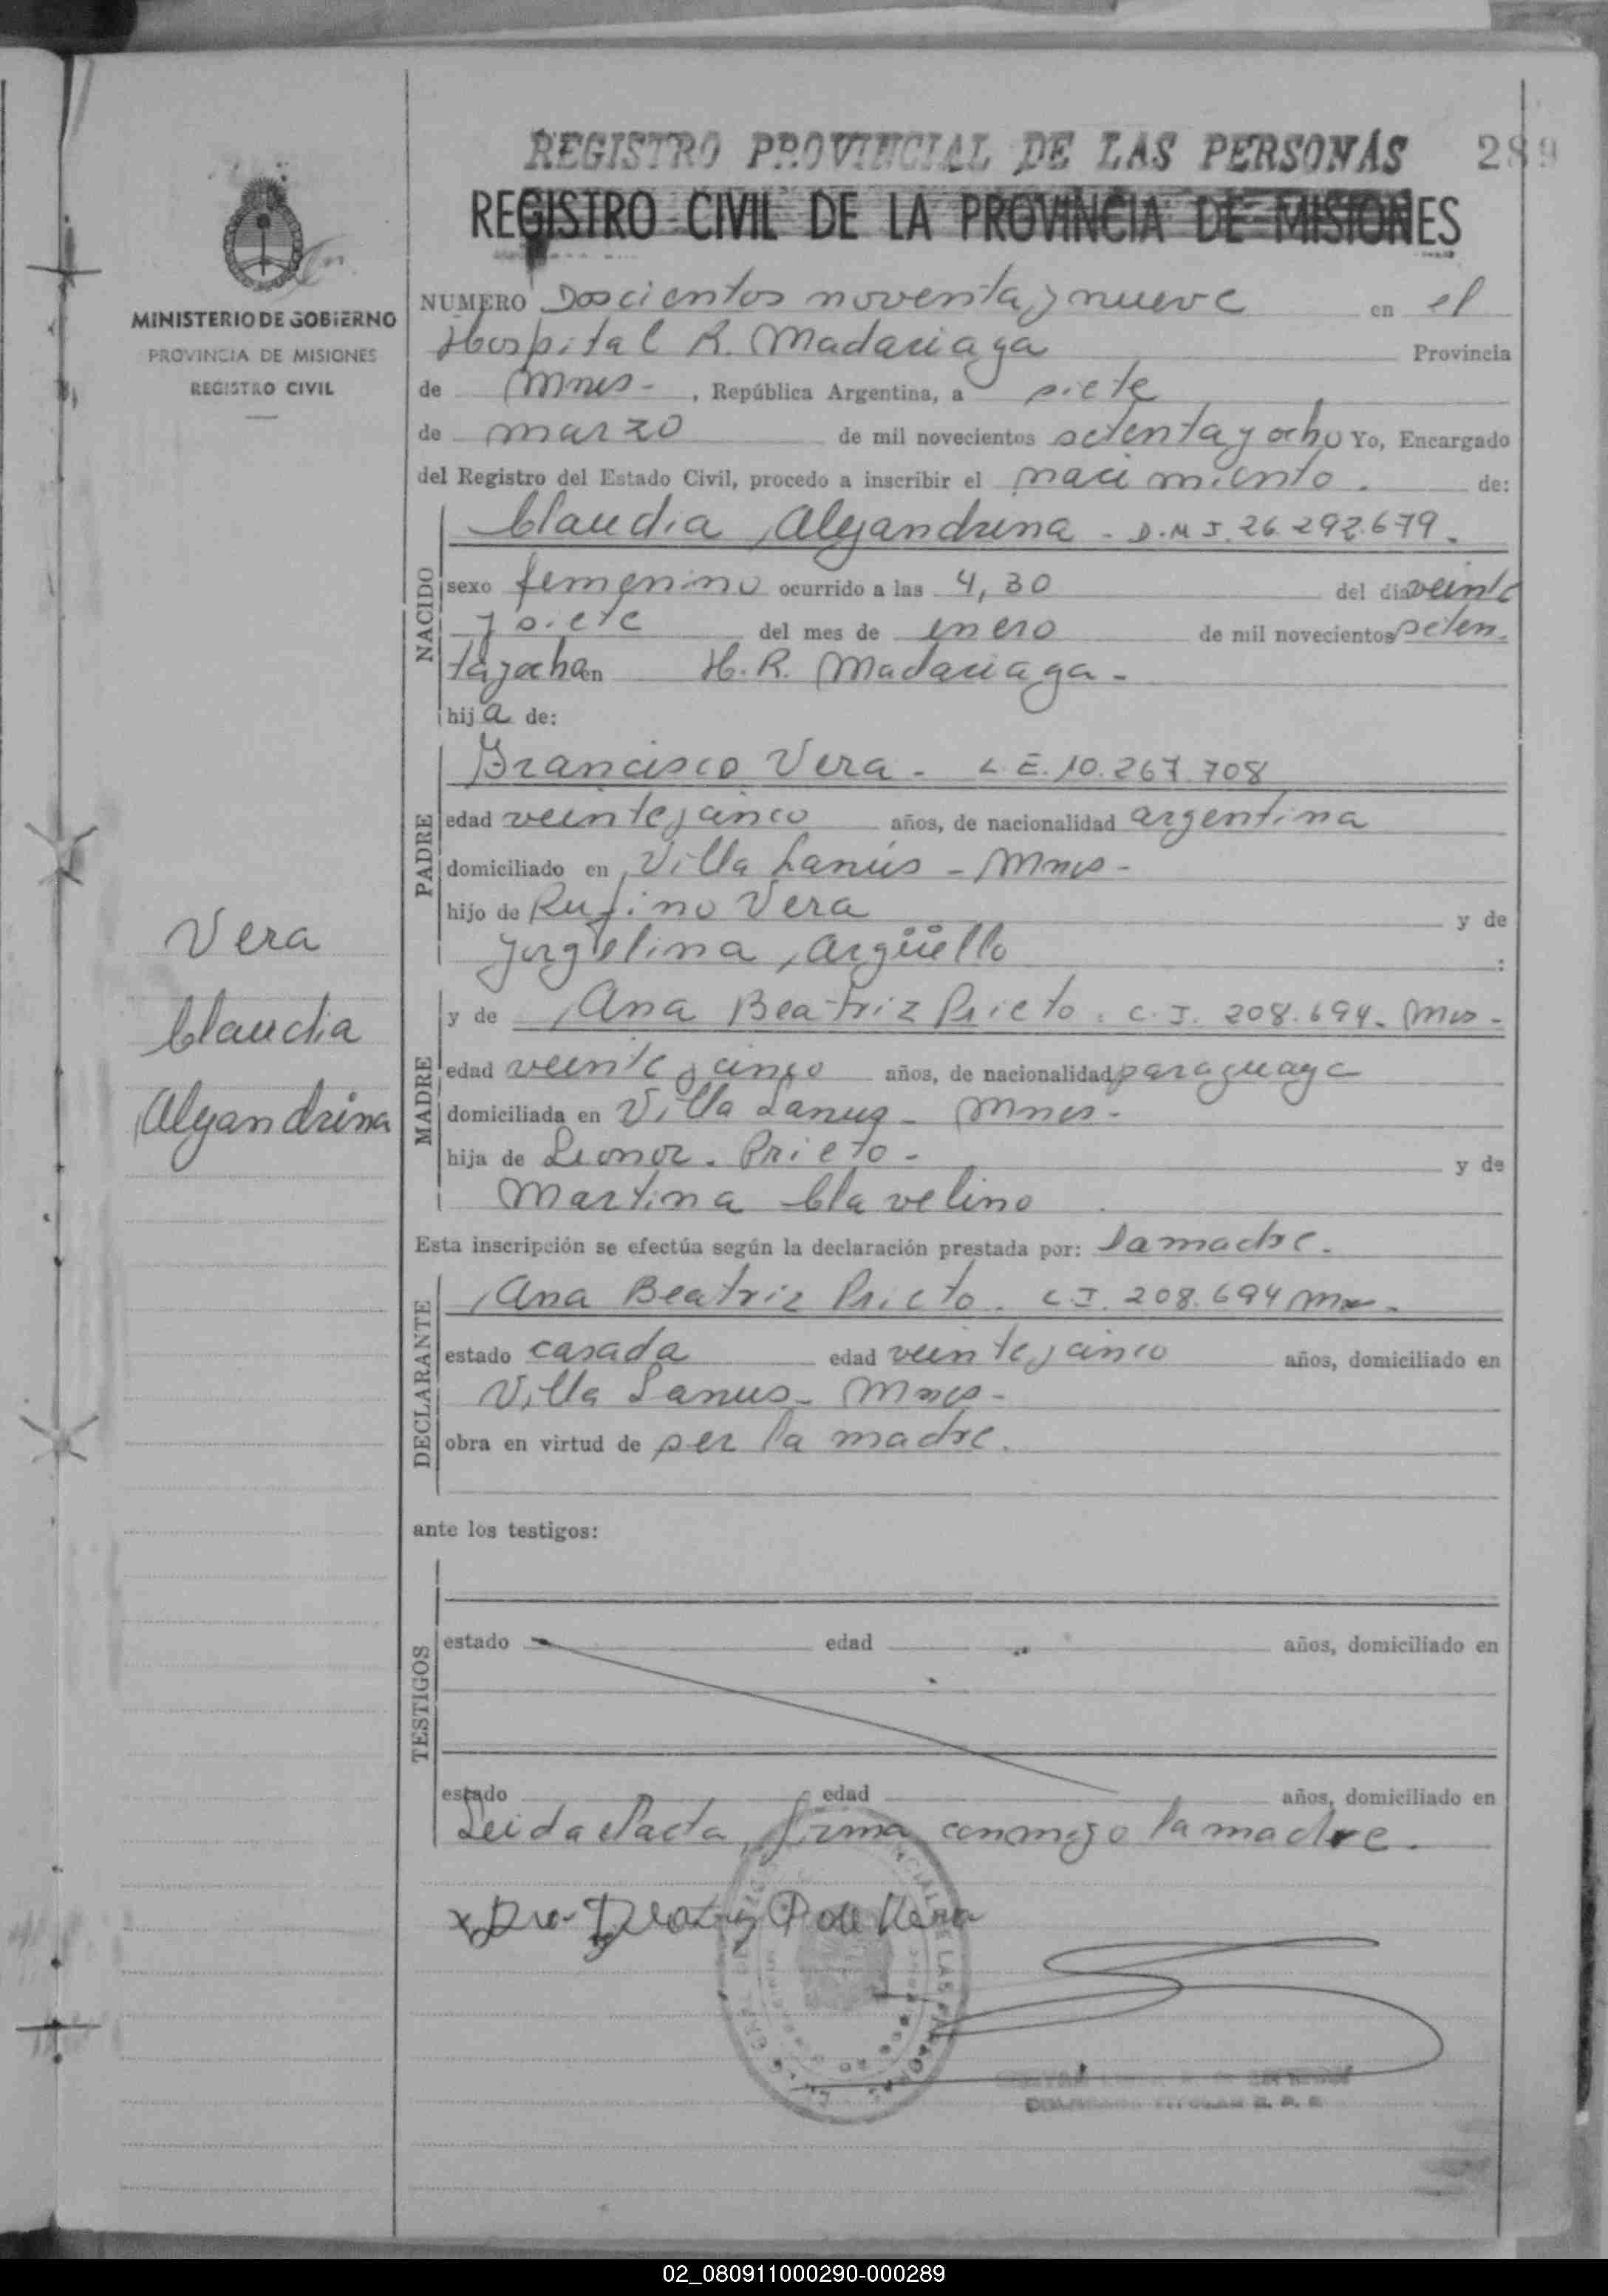 REGISTRO PROVINCIAL DE LAS PERSONAS 289
REGISTRO CIVIL DE LA PROVINCIA DE MISIONES
MINISTERIO DE GOBIERNO
PROVINCIA DE MISIONES
REGISTRO CIVIL
NUMERO Doscientos noventa y nueve en el
Hospital R. Madariaga Provincia
de Mnes-, República Argentina, a siete
de marzo de mil novecientos setenta y ocho Yo, Encargado
del Registro del Estado Civil, procedo a inscribir el nacimiento. de:
NACIDO
Claudia Alejandrina - D.N.I. 26.292.679.
sexo femenino ocurrido a las 4,30 del día veinte
y siete del mes de enero de mil novecientos seten
ta y ocho en H. R. Madariaga -
hija de:
PADRE
Francisco Vera - L.E. 10.267.708
edad veinte y cinco años, de nacionalidad argentina
domiciliado en Villa Lanús - Mnes-
hijo de Rufino Vera y de
Jorgelina Argüello :
Vera
Claudia
Alejandrina
MADRE
y de Ana Beatriz Prieto. C.I. 208.694. Mns-
edad veinte y cinco años, de nacionalidad paraguaya
domiciliada en Villa Lanus - Mnes-
hija de Leonor. Prieto - y de
Martina Clavelino
Esta inscripción se efectúa según la declaración prestada por: la madre.
DECLARANTE
Ana Beatriz Prieto. C.I. 208.694 Mns.
estado casada edad veinte y cinco años, domiciliado en
Villa Lanus - Mnes-
obra en virtud de ser la madre.
ante los testigos:
TESTIGOS
estado edad años, domiciliado en
estado edad años, domiciliado en
Leida el acta, firma conmigo la madre.
Beatriz P de Vera
TITULAR R. P. P.
02_080911000290-000289